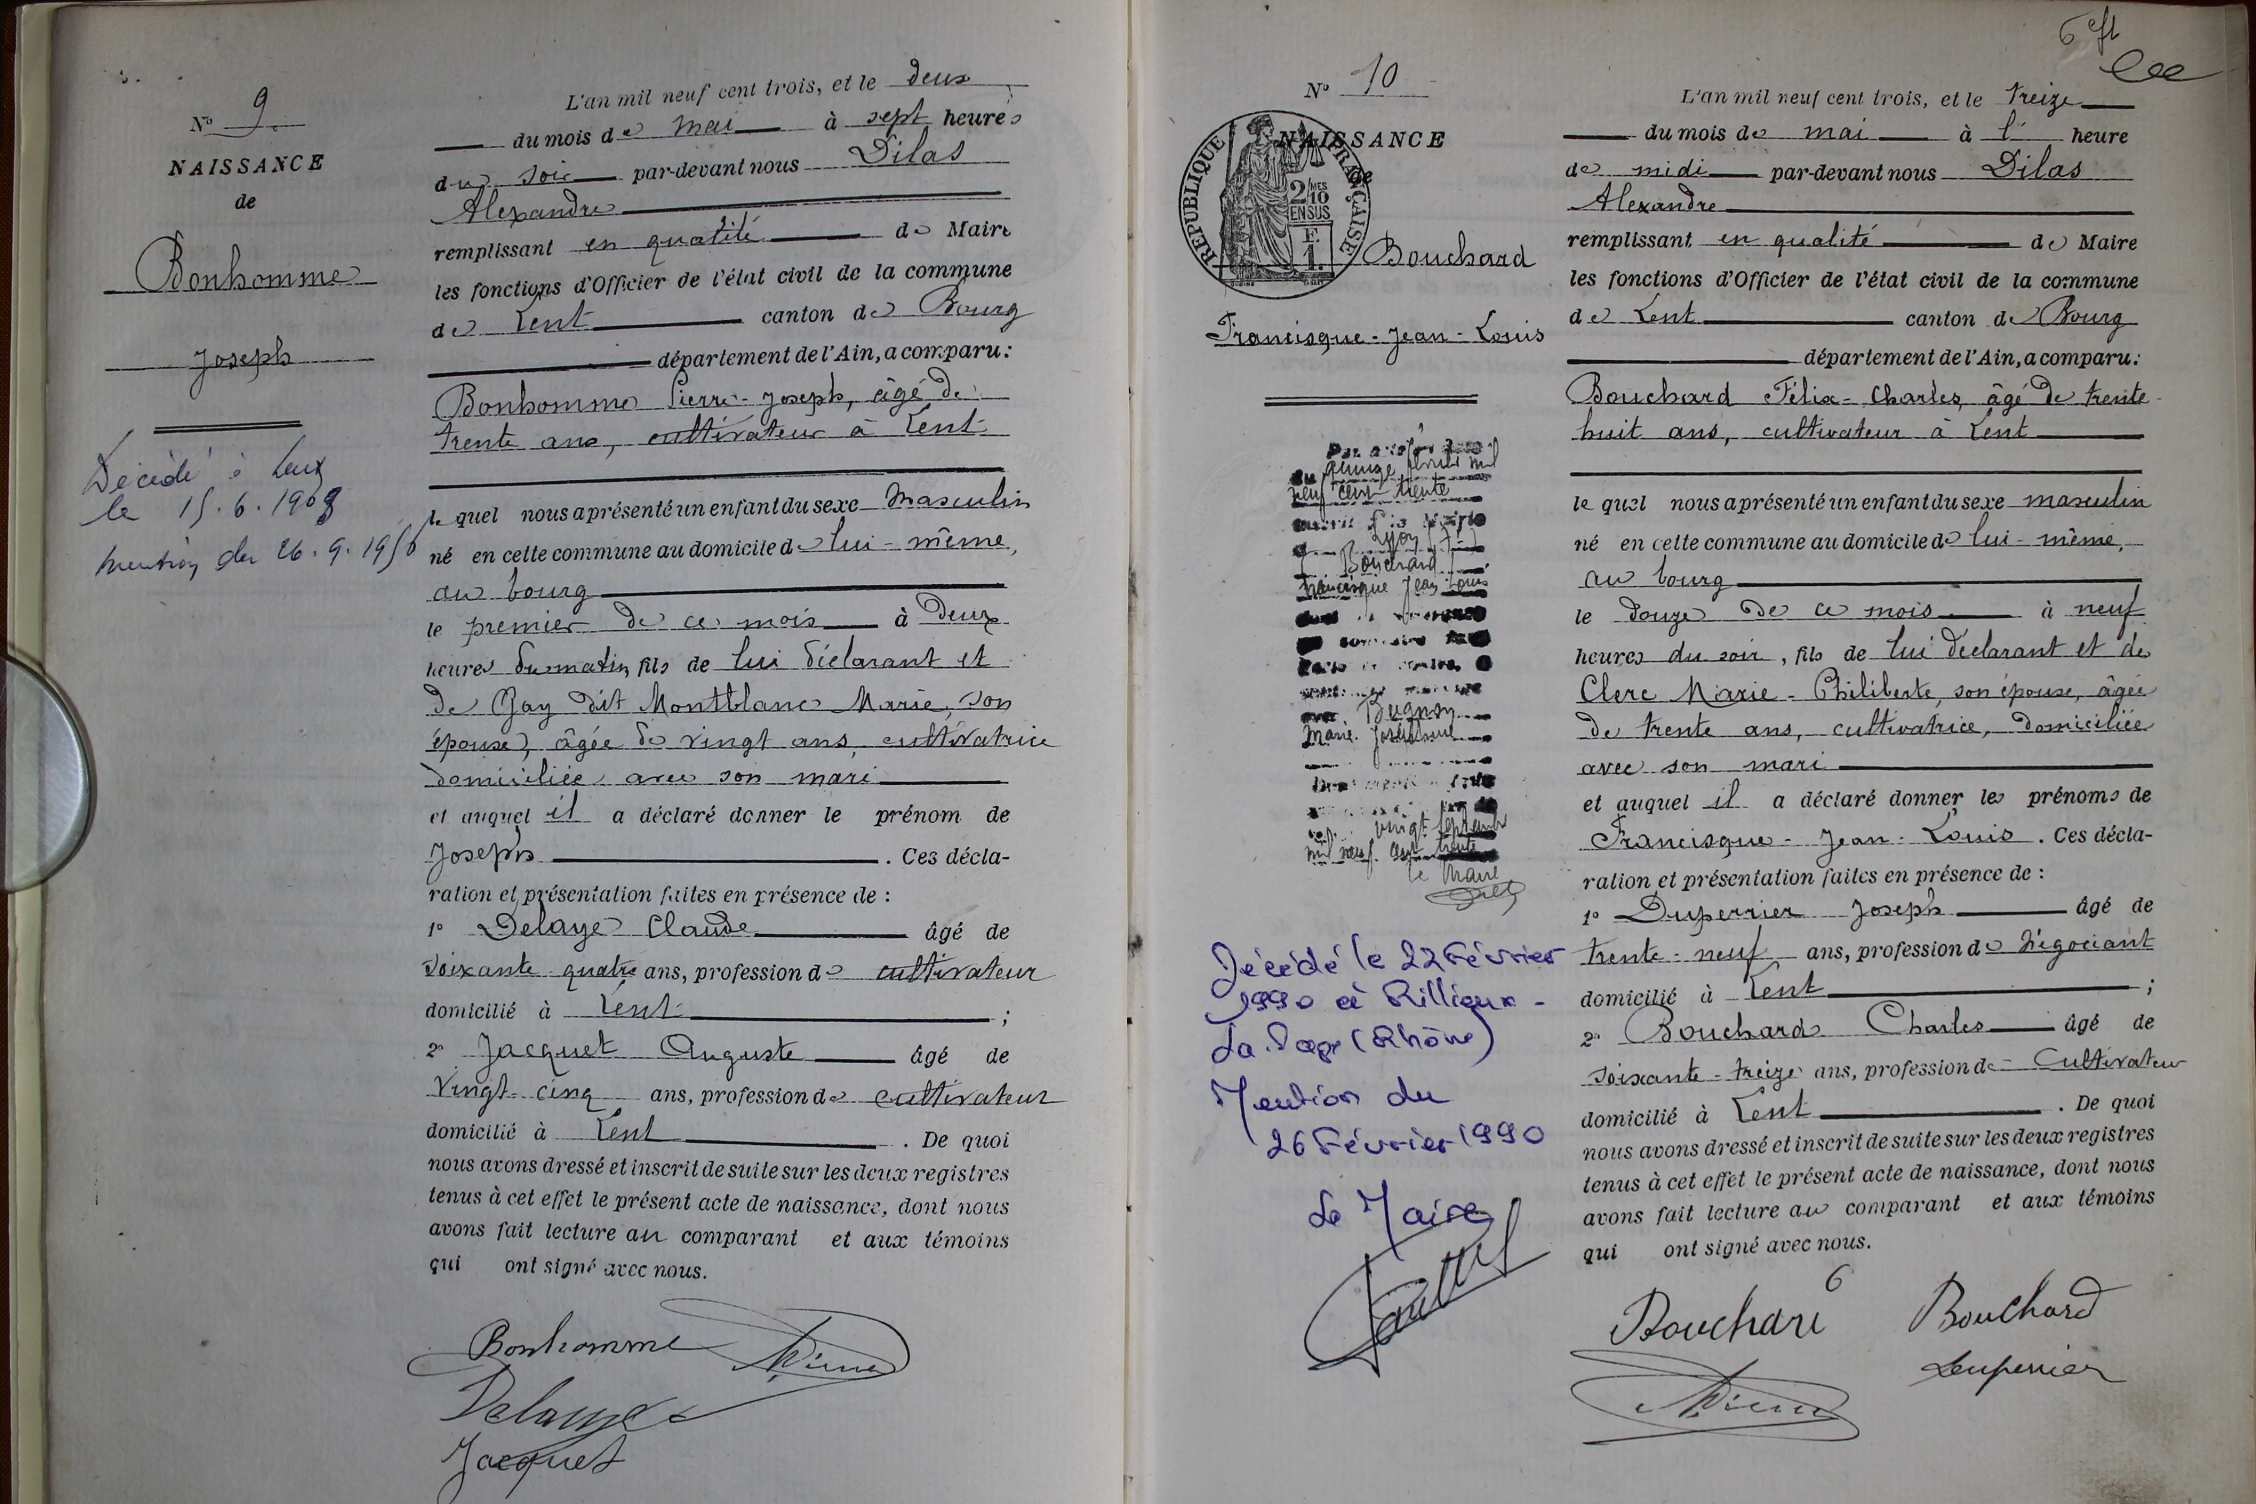 Nº 9
NAISSANCE
de
Bonhomme
Joseph
Décédé à
le 15.6.1968
mention du 26.9.19
L'an mil neuf cent trois, et le deux
du mois de mai à sept heures
du soir par-devant nous Dilas
Alexandre
remplissant en qualité de Maire
les fonctions d'Officier de l'état civil de la commune
de Lent canton de Bourg
département de l'Ain, a comparu:
Bonhomme Pierre-Joseph, âgé de
trente ans, cultivateur à Lent
le quel nous a présenté un enfant du sexe Masculin
né en cette commune au domicile de lui-même,
au bourg
le premier de ce mois à deux
heures du matin, fils de lui déclarant et
de Gay dit Montblanc Marie, son
épouse, âgée de vingt ans, cultivatrice
domiciliée avec son mari
et auquel il a déclaré donner le prénom de
Joseph . Ces décla-
ration et présentation faites en présence de :
1º Delaye Claude âgé de
soixante quatre ans, profession de cultivateur
domicilié à Lent ;
2º Jacquet Auguste âgé de
vingt-cinq ans, profession de cultivateur
domicilié à Lent . De quoi
nous avons dressé et inscrit de suite sur les deux registres
tenus à cet effet le présent acte de naissance, dont nous
avons fait lecture au comparant et aux témoins
qui ont signé avec nous.
Bonhomme
Delaye
Jacquet
Nº 10
NAISSANCE
de
RÉPUBLIQUE FRANÇAISE
2/10 MES
EN SUS
F.
1.
Bouchard
Francisque-Jean-Louis
quinze mil
neuf cent trente
Lyon
Bouchard
Francisque Jean Louis
Bugnon
Marie
vingt septembre
mil neuf cent trente
le Maire
Décédé le 22 Février
1990 à Rillieux-
La-Pape (Rhône)
Mention du
26 Février 1990
Le Maire
L'an mil neuf cent trois, et le treize
du mois de mai à l' heure
de midi par-devant nous Dilas
Alexandre
remplissant en qualité de Maire
les fonctions d'Officier de l'état civil de la commune
de Lent canton de Bourg
département de l'Ain, a comparu:
Bouchard Félix-Charles, âgé de trente-
huit ans, cultivateur à Lent
le quel nous a présenté un enfant du sexe masculin
né en cette commune au domicile de lui-même,
au bourg
le douze de ce mois à neuf
heures du soir, fils de lui déclarant et de
Clerc Marie-Philiberte, son épouse, âgée
de trente ans, cultivatrice, domiciliée
avec son mari
et auquel il a déclaré donner les prénoms de
Francisque-Jean-Louis. Ces décla-
ration et présentation faites en présence de :
1º Duperrier Joseph âgé de
trente-neuf ans, profession de négociant
domicilié à Lent ;
2º Bouchard Charles âgé de
soixante-treize ans, profession de Cultivateur
domicilié à Lent . De quoi
nous avons dressé et inscrit de suite sur les deux registres
tenus à cet effet le présent acte de naissance, dont nous
avons fait lecture au comparant et aux témoins
qui ont signé avec nous.
Bouchard Bouchard
Duperrier